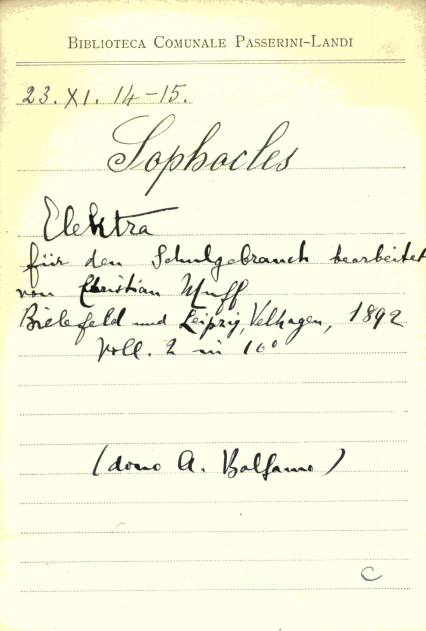 BIBLIOTECA COMUNALE PASSERINI-LANDI
23. XI. 14-15.
Sophocles
Elektra
für den Schulgebrauch bearbeitet
von Christian Muff
Bielefeld und Leipzig, Velhagen, 1892
voll. 2 in 16°
(dono A. Balsamo)
C